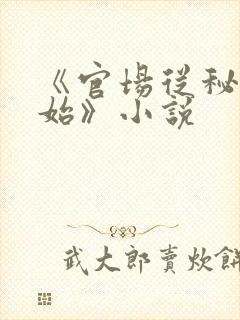 《官場從秘
始》小說
武大郎賣炊餅